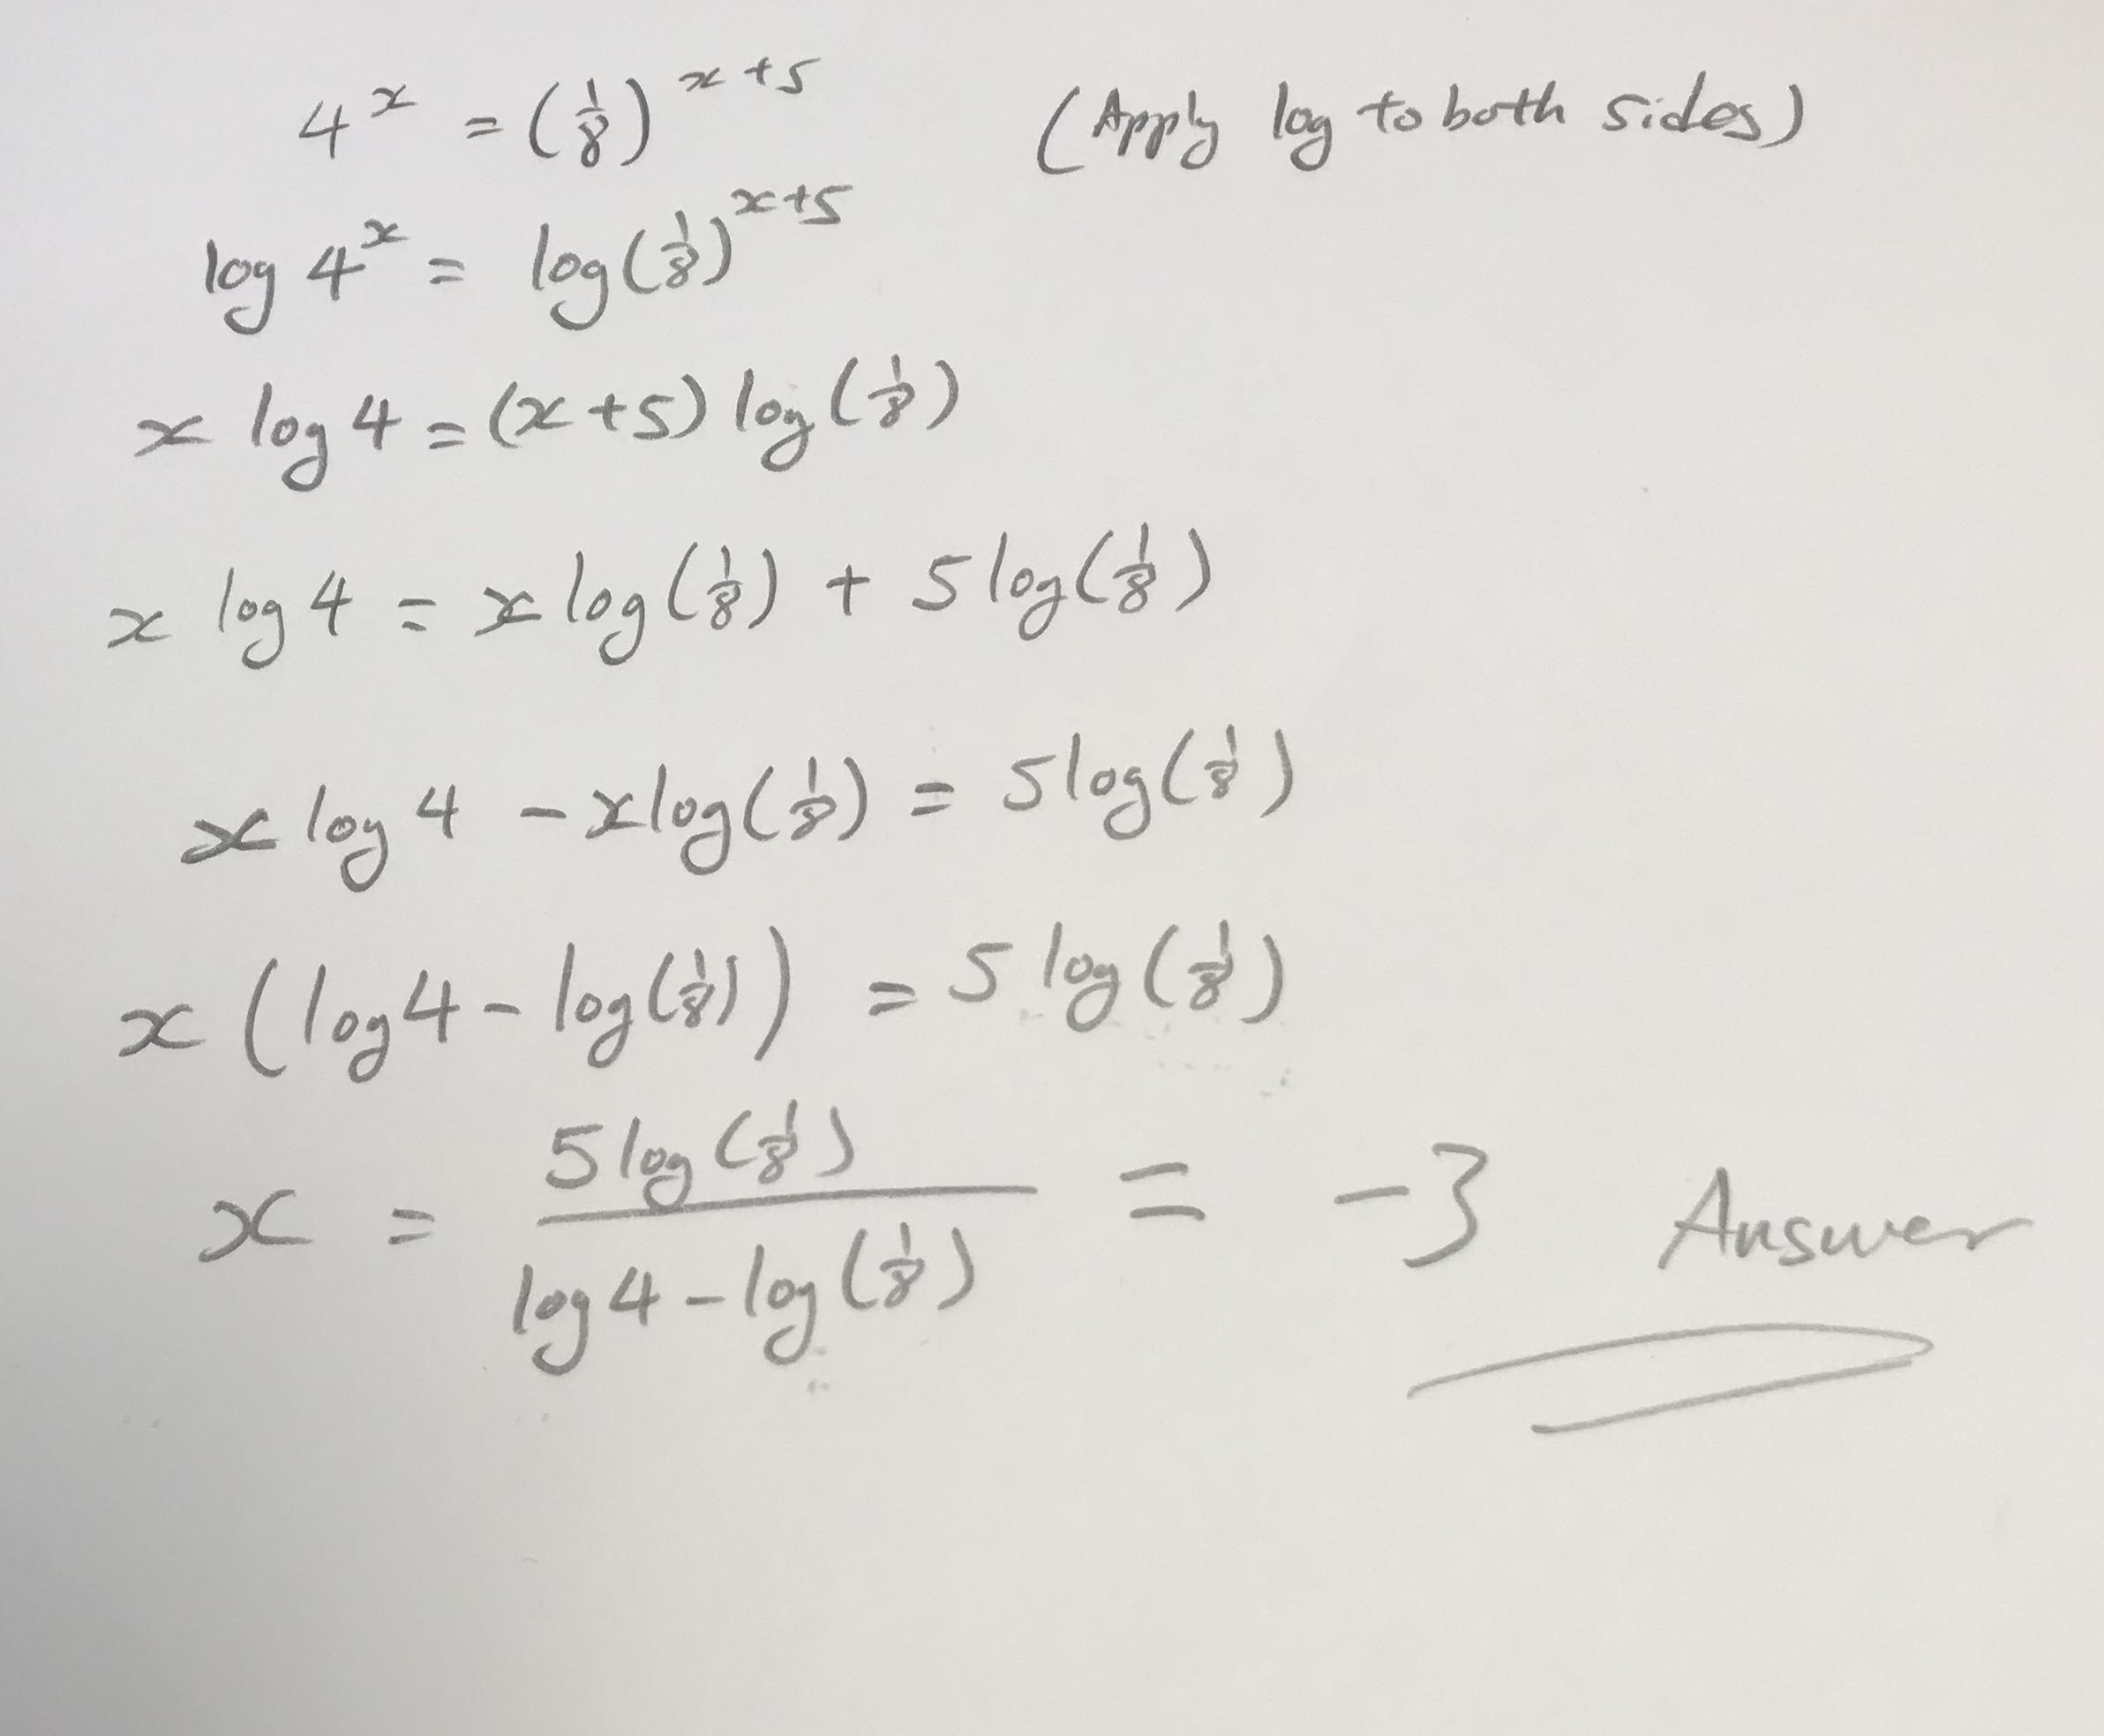 4^x = (1/8)^(x+5) (Apply log to both sides)
log 4^x = log(1/8)^(x+5)
x log 4 = (x+5) log(1/8)
x log 4 = x log(1/8) + 5 log(1/8)
x log 4 - x log(1/8) = 5 log(1/8)
x (log 4 - log(1/8)) = 5 log(1/8)
x = 5 log(1/8) / log 4 - log(1/8) = -3 Answer